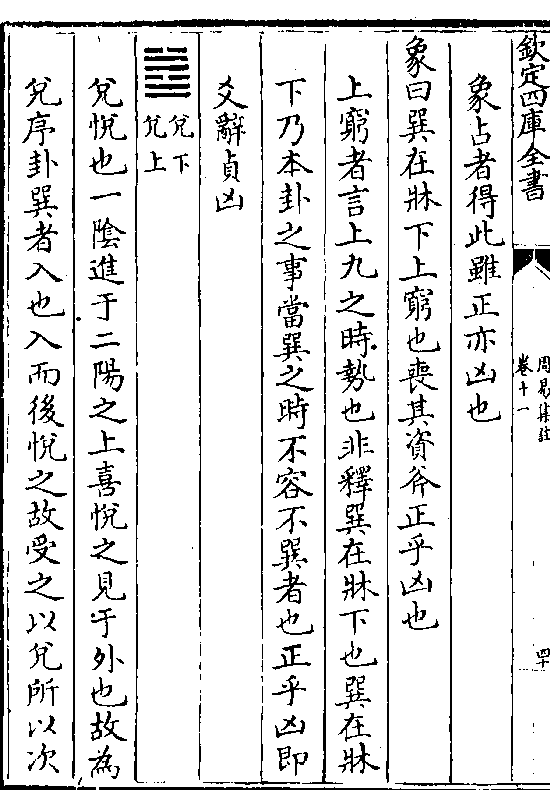 欽定四庫全書
周易集註
卷十一
四十
象占者得此雖正亦凶也
象曰巽在牀下上窮也喪其資斧正乎凶也
上窮者言上九之時勢也非釋巽在牀下也巽在牀
下乃本卦之事當巽之時不容不巽者也正乎凶即
爻辭貞凶
兌下
兌上
兌悅也一陰進于二陽之上喜悅之見于外也故為
兌序卦巽者入也入而後悅之故受之以兌所以次